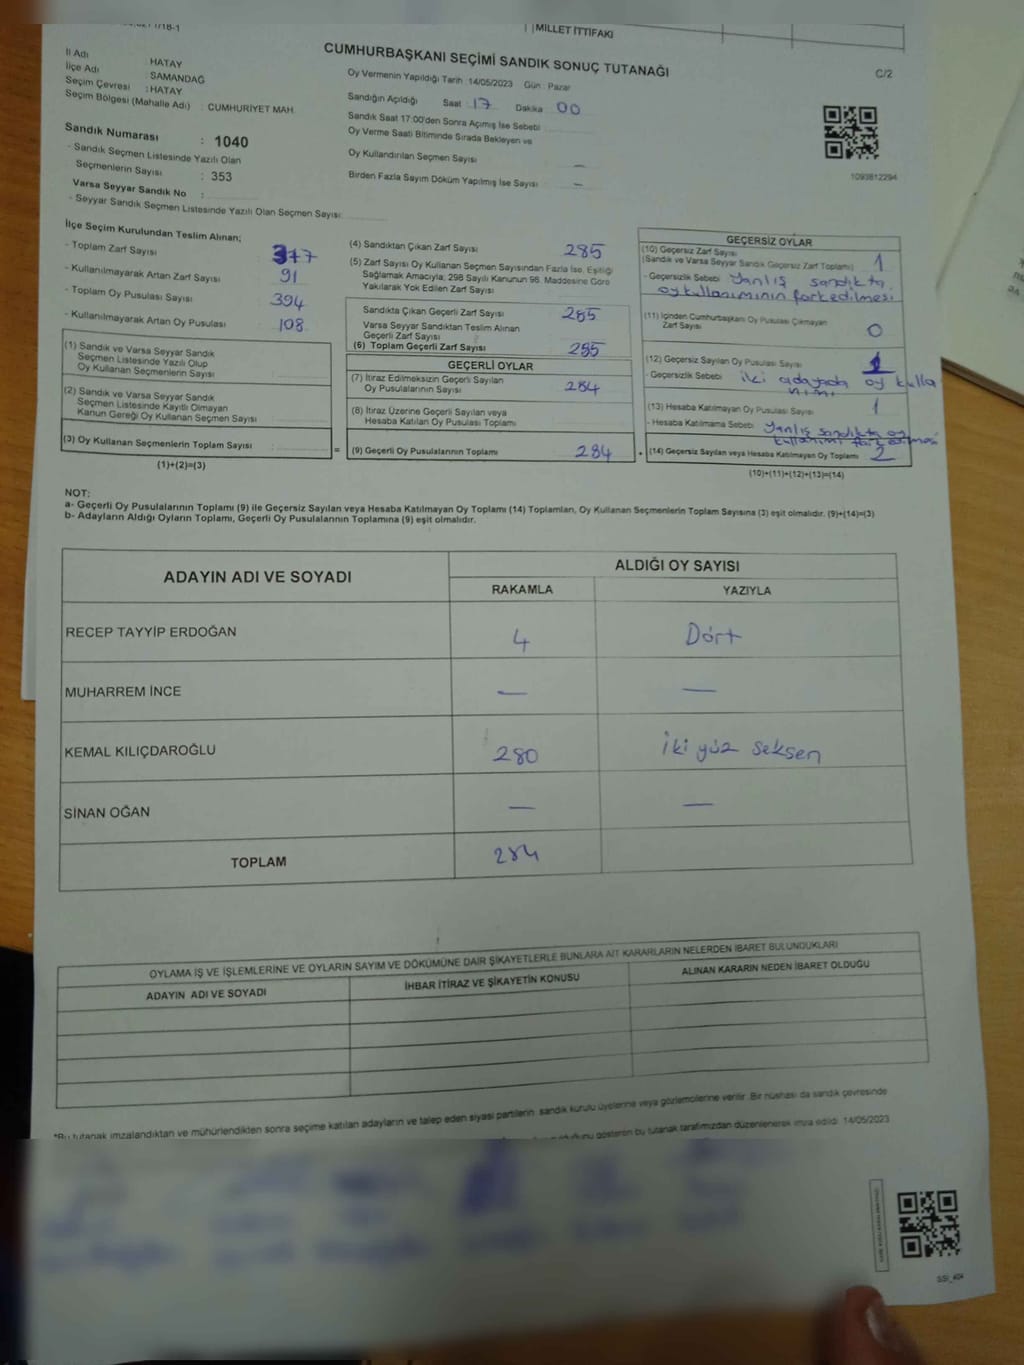 MİLLET İTTİFAKI
CUMHURBAŞKANI SEÇİMİ SANDIK SONUÇ TUTANAĞI
C/2
İl Adı : HATAY
İlçe Adı : SAMANDAĞ
Seçim Çevresi : HATAY
Seçim Bölgesi (Mahalle Adı) : CUMHURİYET MAH.
Sandık Numarası : 1040
- Sandık Seçmen Listesinde Yazılı Olan
Seçmenlerin Sayısı : 353
Varsa Seyyar Sandık No :
- Seyyar Sandık Seçmen Listesinde Yazılı Olan Seçmen Sayısı:
Oy Vermenin Yapıldığı Tarih :14/05/2023 Gün : Pazar
Sandığın Açıldığı Saat : 17 Dakika : 00
Sandık Saat 17:00'den Sonra Açımış İse Sebebi :
Oy Verme Saati Bitiminde Sırada Bekleyen ve
Oy Kullandırılan Seçmen Sayısı —
Birden Fazla Sayım Döküm Yapılmış İse Sayısı —
1093812294
İlçe Seçim Kurulundan Teslim Alınan;
- Toplam Zarf Sayısı : 377
- Kullanılmayarak Artan Zarf Sayısı : 91
- Toplam Oy Pusulası Sayısı : 394
- Kullanılmayarak Artan Oy Pusulası : 108
(1) Sandık ve Varsa Seyyar Sandık
Seçmen Listesinde Yazılı Olup
Oy Kullanan Seçmenlerin Sayısı :
(2) Sandık ve Varsa Seyyar Sandık
Seçmen Listesinde Kayıtlı Olmayan
Kanun Gereği Oy Kullanan Seçmen Sayısı :
(3) Oy Kullanan Seçmenlerin Toplam Sayısı :
(1)+(2)=(3)
(4) Sandıktan Çıkan Zarf Sayısı 285
(5) Zarf Sayısı Oy Kullanan Seçmen Sayısından Fazla İse, Eşitliği
Sağlamak Amacıyla, 298 Sayılı Kanunun 98. Maddesine Göre
Yakılarak Yok Edilen Zarf Sayısı
Sandıkta Çıkan Geçerli Zarf Sayısı : 285
Varsa Seyyar Sandıktan Teslim Alınan
Geçerli Zarf Sayısı :
(6) Toplam Geçerli Zarf Sayısı 285
GEÇERLİ OYLAR
(7) İtiraz Edilmeksizin Geçerli Sayılan
Oy Pusulalarının Sayısı : 284
(8) İtiraz Üzerine Geçerli Sayılan veya
Hesaba Katılan Oy Pusulası Toplamı :
=
(9) Geçerli Oy Pusulalarının Toplamı : 284
+
GEÇERSİZ OYLAR
(10) Geçersiz Zarf Sayısı
(Sandık ve Varsa Seyyar Sandık Geçersiz Zarf Toplamı) : 1
- Geçersizlik Sebebi : Yanlış sandıkta
oy kullanımının farkedilmesi
(11) İçinden Cumhurbaşkanı Oy Pusulası Çıkmayan
Zarf Sayısı : 0
(12) Geçersiz Sayılan Oy Pusulası Sayısı : 1
- Geçersizlik Sebebi : iki adayada oy kulla
nımı
(13) Hesaba Katılmayan Oy Pusulası Sayısı : 1
- Hesaba Katılmama Sebebi: Yanlış sandıkta oy
kullanımı
(14) Geçersiz Sayılan veya Hesaba Katılmayan Oy Toplamı : 2
(10)+(11)+(12)+(13)=(14)
NOT:
a- Geçerli Oy Pusulalarının Toplamı (9) ile Geçersiz Sayılan veya Hesaba Katılmayan Oy Toplamı (14) Toplamları, Oy Kullanan Seçmenlerin Toplam Sayısına (3) eşit olmalıdır. (9)+(14)=(3)
b- Adayların Aldığı Oyların Toplamı, Geçerli Oy Pusulalarının Toplamına (9) eşit olmalıdır.
ADAYIN ADI VE SOYADI
ALDIĞI OY SAYISI
RAKAMLA YAZIYLA
RECEP TAYYİP ERDOĞAN 4 Dört
MUHARREM İNCE — —
KEMAL KILIÇDAROĞLU 280 iki yüz seksen
SİNAN OĞAN — —
TOPLAM 284
OYLAMA İŞ VE İŞLEMLERİNE VE OYLARIN SAYIM VE DÖKÜMÜNE DAİR ŞİKAYETLERLE BUNLARA AİT KARARLARIN NELERDEN İBARET BULUNDUKLARI
ADAYIN ADI VE SOYADI İHBAR İTİRAZ VE ŞİKAYETİN KONUSU ALINAN KARARIN NEDEN İBARET OLDUĞU
*Bu tutanak imzalandıktan ve mühürlendikten sonra seçime katılan adayların ve talep eden siyasi partilerin sandık kurulu üyelerine veya gözlemcilerine verilir. Bir nüshası da sandık çevresinde
gösteren bu tutanak tarafımızdan düzenlenerek imza edildi. 14/05/2023
SSI_404